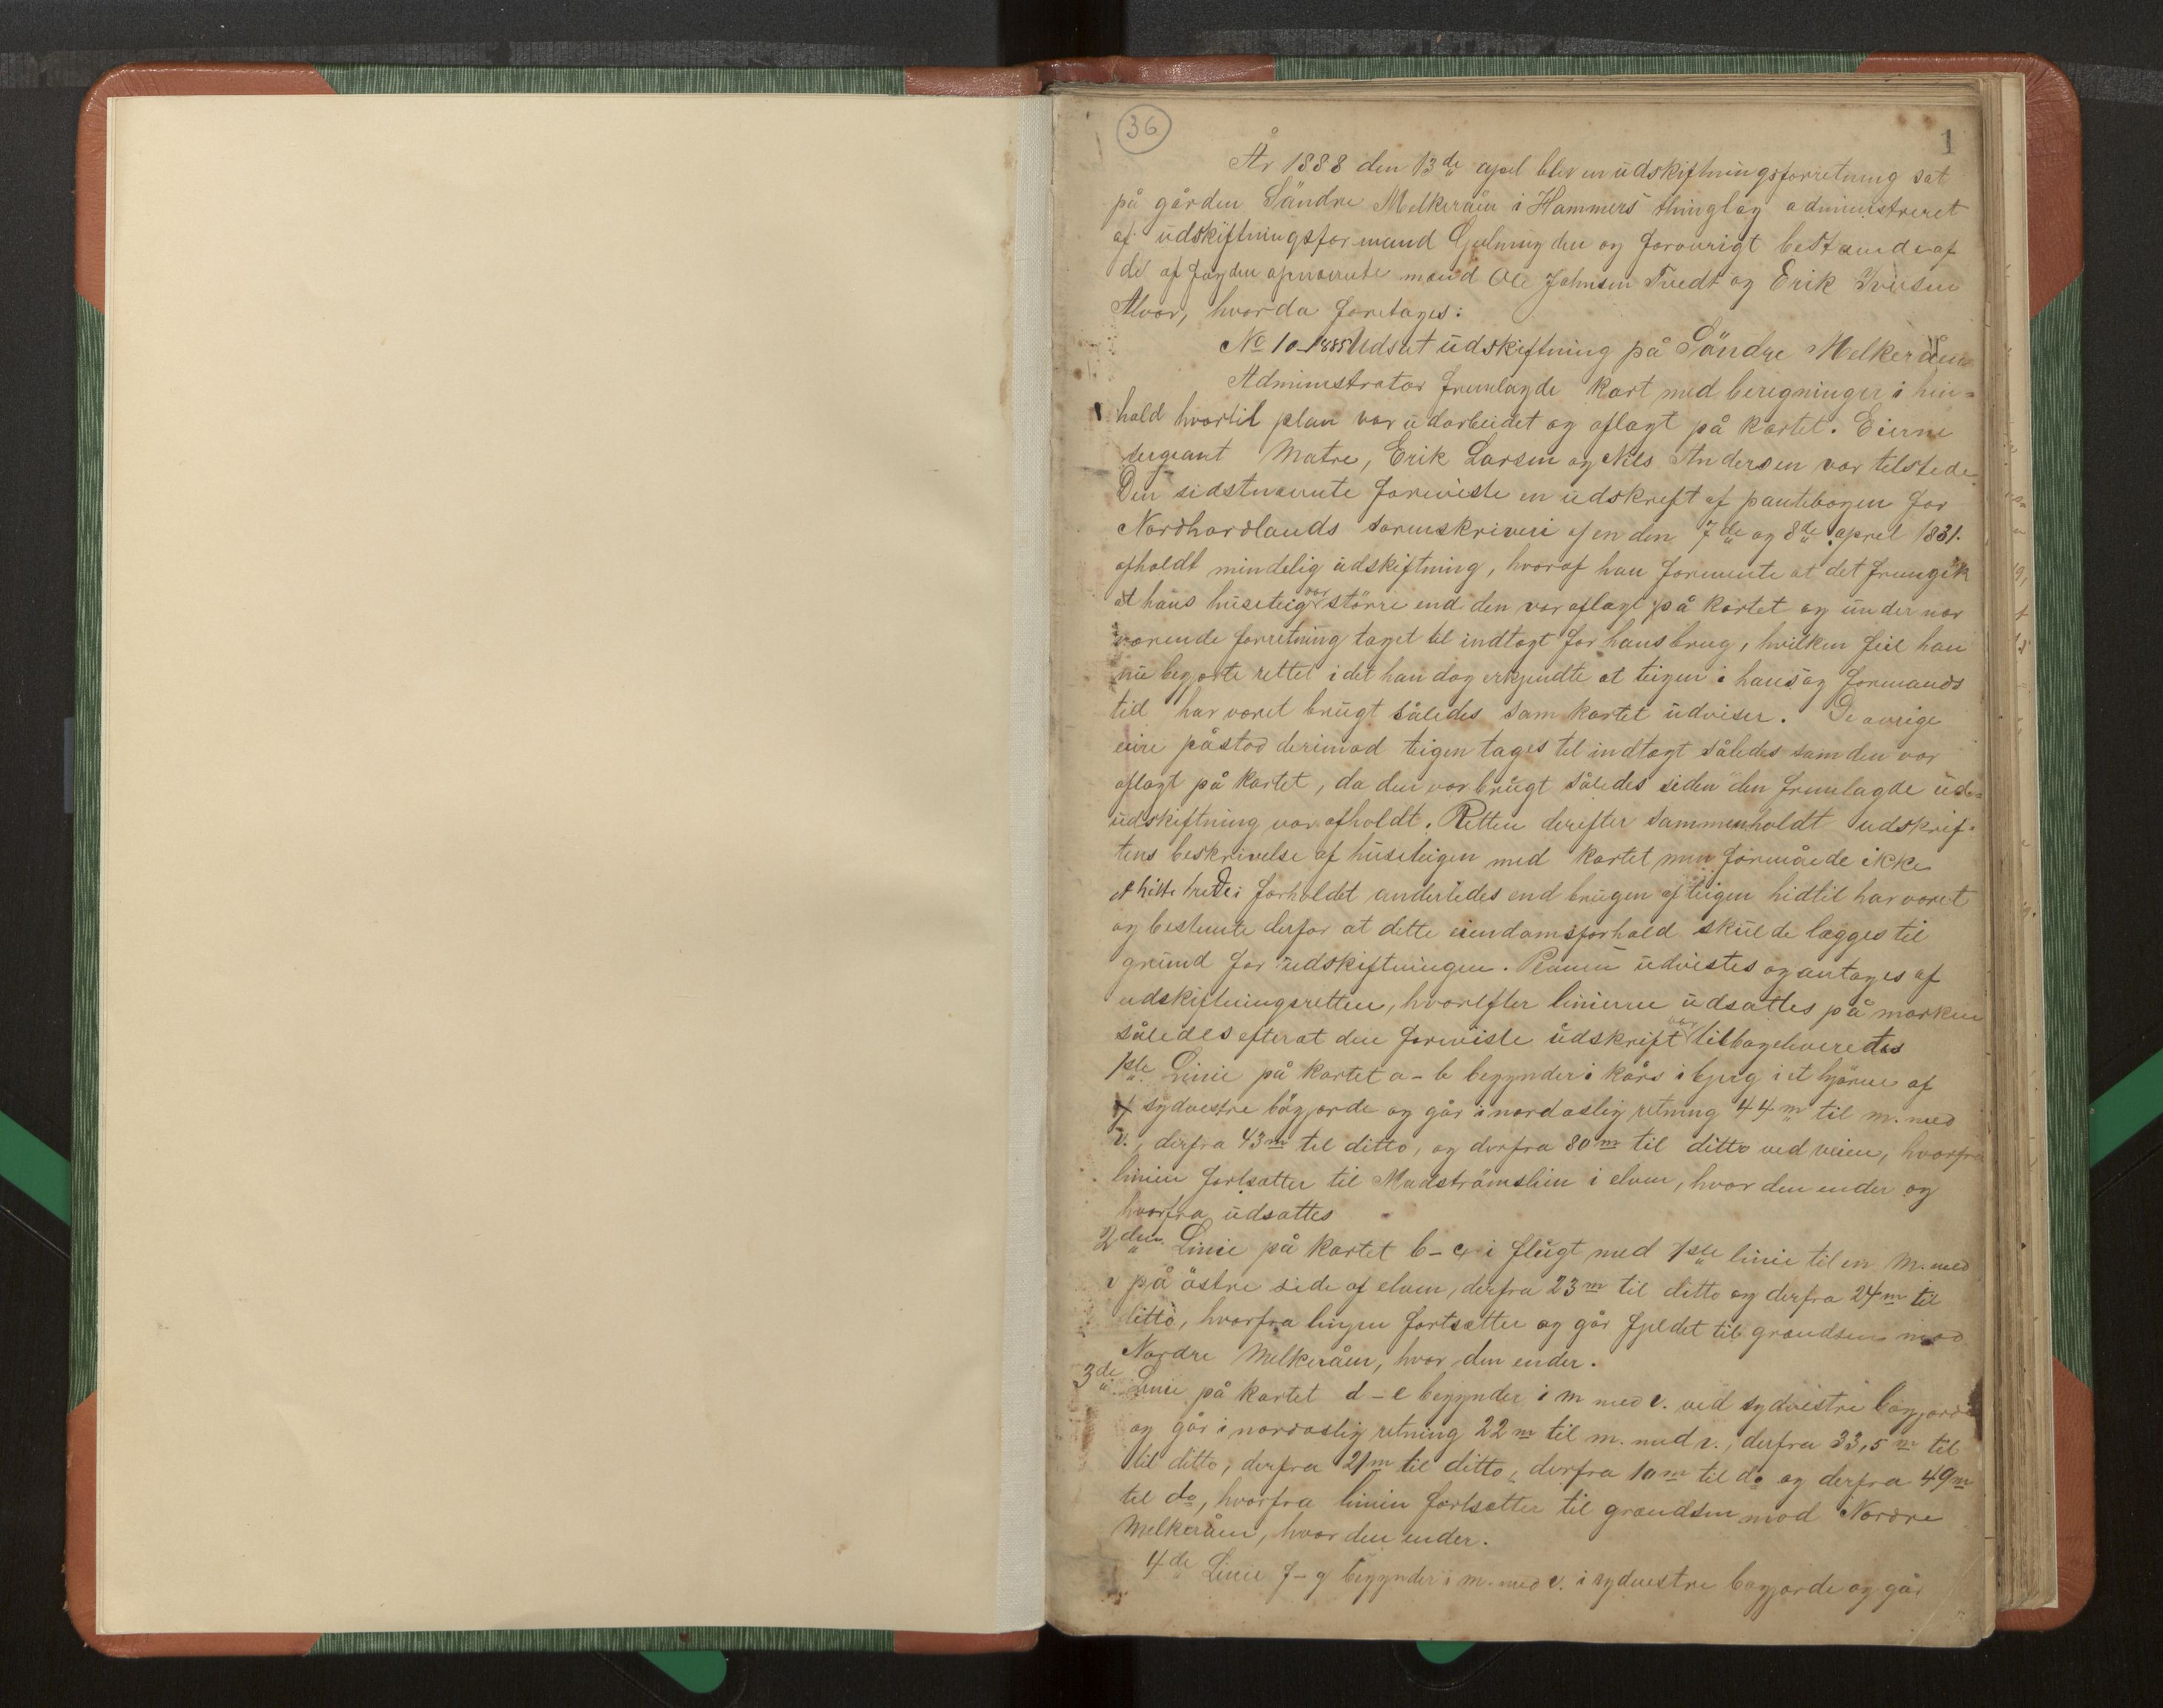 36
1
År 1888 den 13de april blev en udskiftningsforretning sat
på gården Søndre Melkeråen i Hammers thinglag administreret
af udskiftningsformand og forøvrigt bestående af
de af fogden opnævnte mænd Ole Johnsen Tvedt og Erik Iversen
Alver, hvor da foretoges:
No 10 1885 Udsat udskiftning på Søndre Melkeråen
Administrator fremlagde kart med beregninger i hen=
hold hvortil plan var udarbeidet og aflagt på kartet. Eierne
sergeant Matre, Erik Larsen og Nils Andersen var tilstede.
Den sidstnævnte foreviste en udskrift af pantebogen for
Nordhordlands sorenskriveri af en den 7de og 8de april 1831.
afholdt mindelig udskiftning, hvoraf han formente at det fremgik
at hans huseteig var större end den var aflagt på kartet og under nær
værende forretning taget til indtægt for hans brug, hvilken feil han
nu begjærte rettet i det han dog erkjendte at teigen i hans og formands
tid har været brugt således som kartet udviser. De øvrige
eiere påstod derimod teigen tages til indtægt således som den var
aflagt på kartet, da den var brugt således siden den fremlagde ud=
udskiftning var afholdt. Retten derefter sammenholdt udskrif=
tens beskrivelse af huseteigen med kartet men formåede ikke
at forholdet anderledes end brugen af teigen hidtil har været
og bestemte derfor at dette eiendomsforhold skulde lægges til
grund for udskiftningen. Planen udvistes og antoges af
udskiftningsretten, hvorefter linierne udsattes på marken
således efterat den foreviste udskrift var tilbageleveredes
1ste Linie på kartet a-b begynder i kårs i bjerg i et hjörne af
af sydvestre bögjorde og går i nordøstlig retning 44m til m. med
v., derfra 43m til ditto, og derfra 80m til ditto ved veien, hvorfra
linien fortsætter til Madströmshein i elven, hvor den ender og
hvorfra udsattes
2den Linie på kartet b-c i flugt med 1ste linie til en m. med
v på östre side af elven, derfra 23m til ditto og derfra 24m til
ditto, hvorfra linjen fortsætter og går fjeldet til grændsen mod
Nordre Melkeråen, hvor den ender.
3de Linie på kartet d-e begynder i m med v. ved sydvestre bøgjorde
og går i nordøstlig retning 22m til m. med v., derfra 33,5m til
til ditto, derfra 21m til ditto, derfra 10m til do og derfra 49m
til do, hvorfra linien fortsætter til grændsen mod Nordre
Melkeråen, hvor den ender.
4de Linie f-g begynder i m. med v. i sydvestre bøgjorde og går